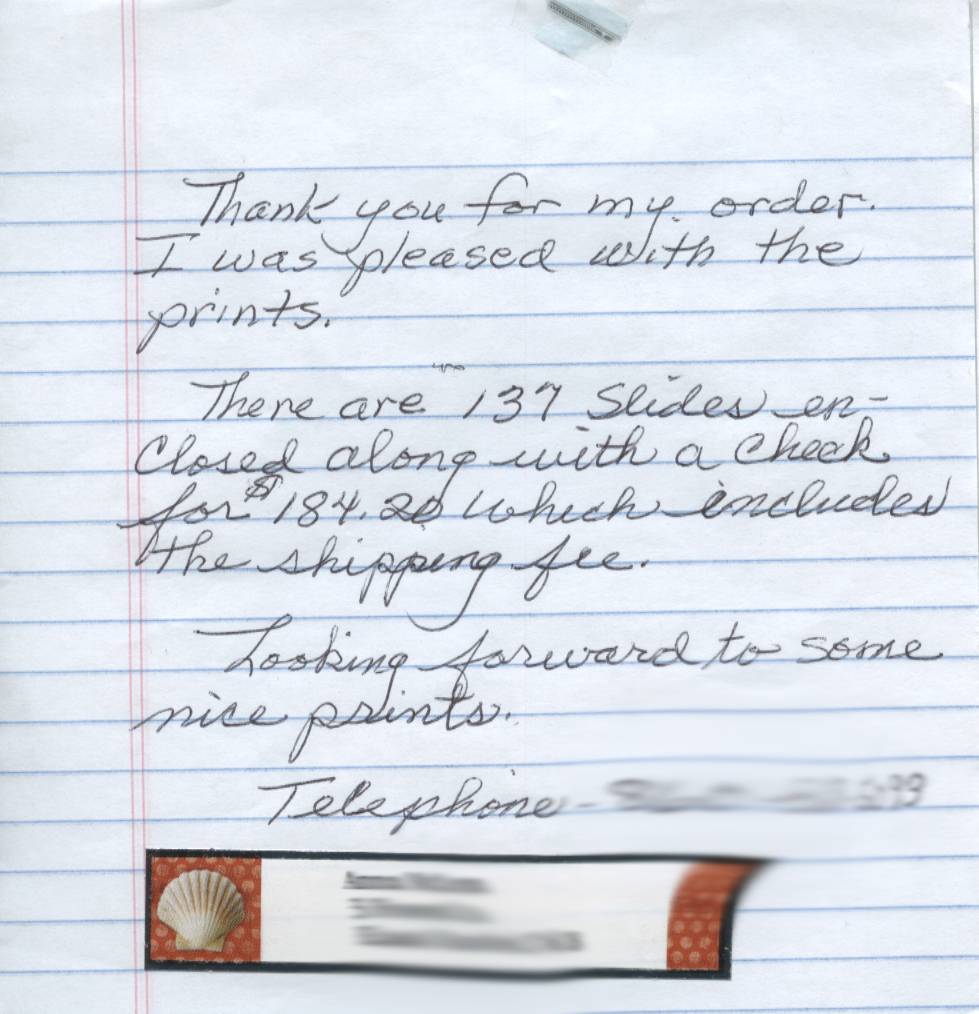 Thank you for my order.
I was pleased with the
prints.
There are 137 Slides en-
Closed along with a Check
for $184.20 which includes
the shipping fee.
Looking forward to some
nice prints.
Telephone -